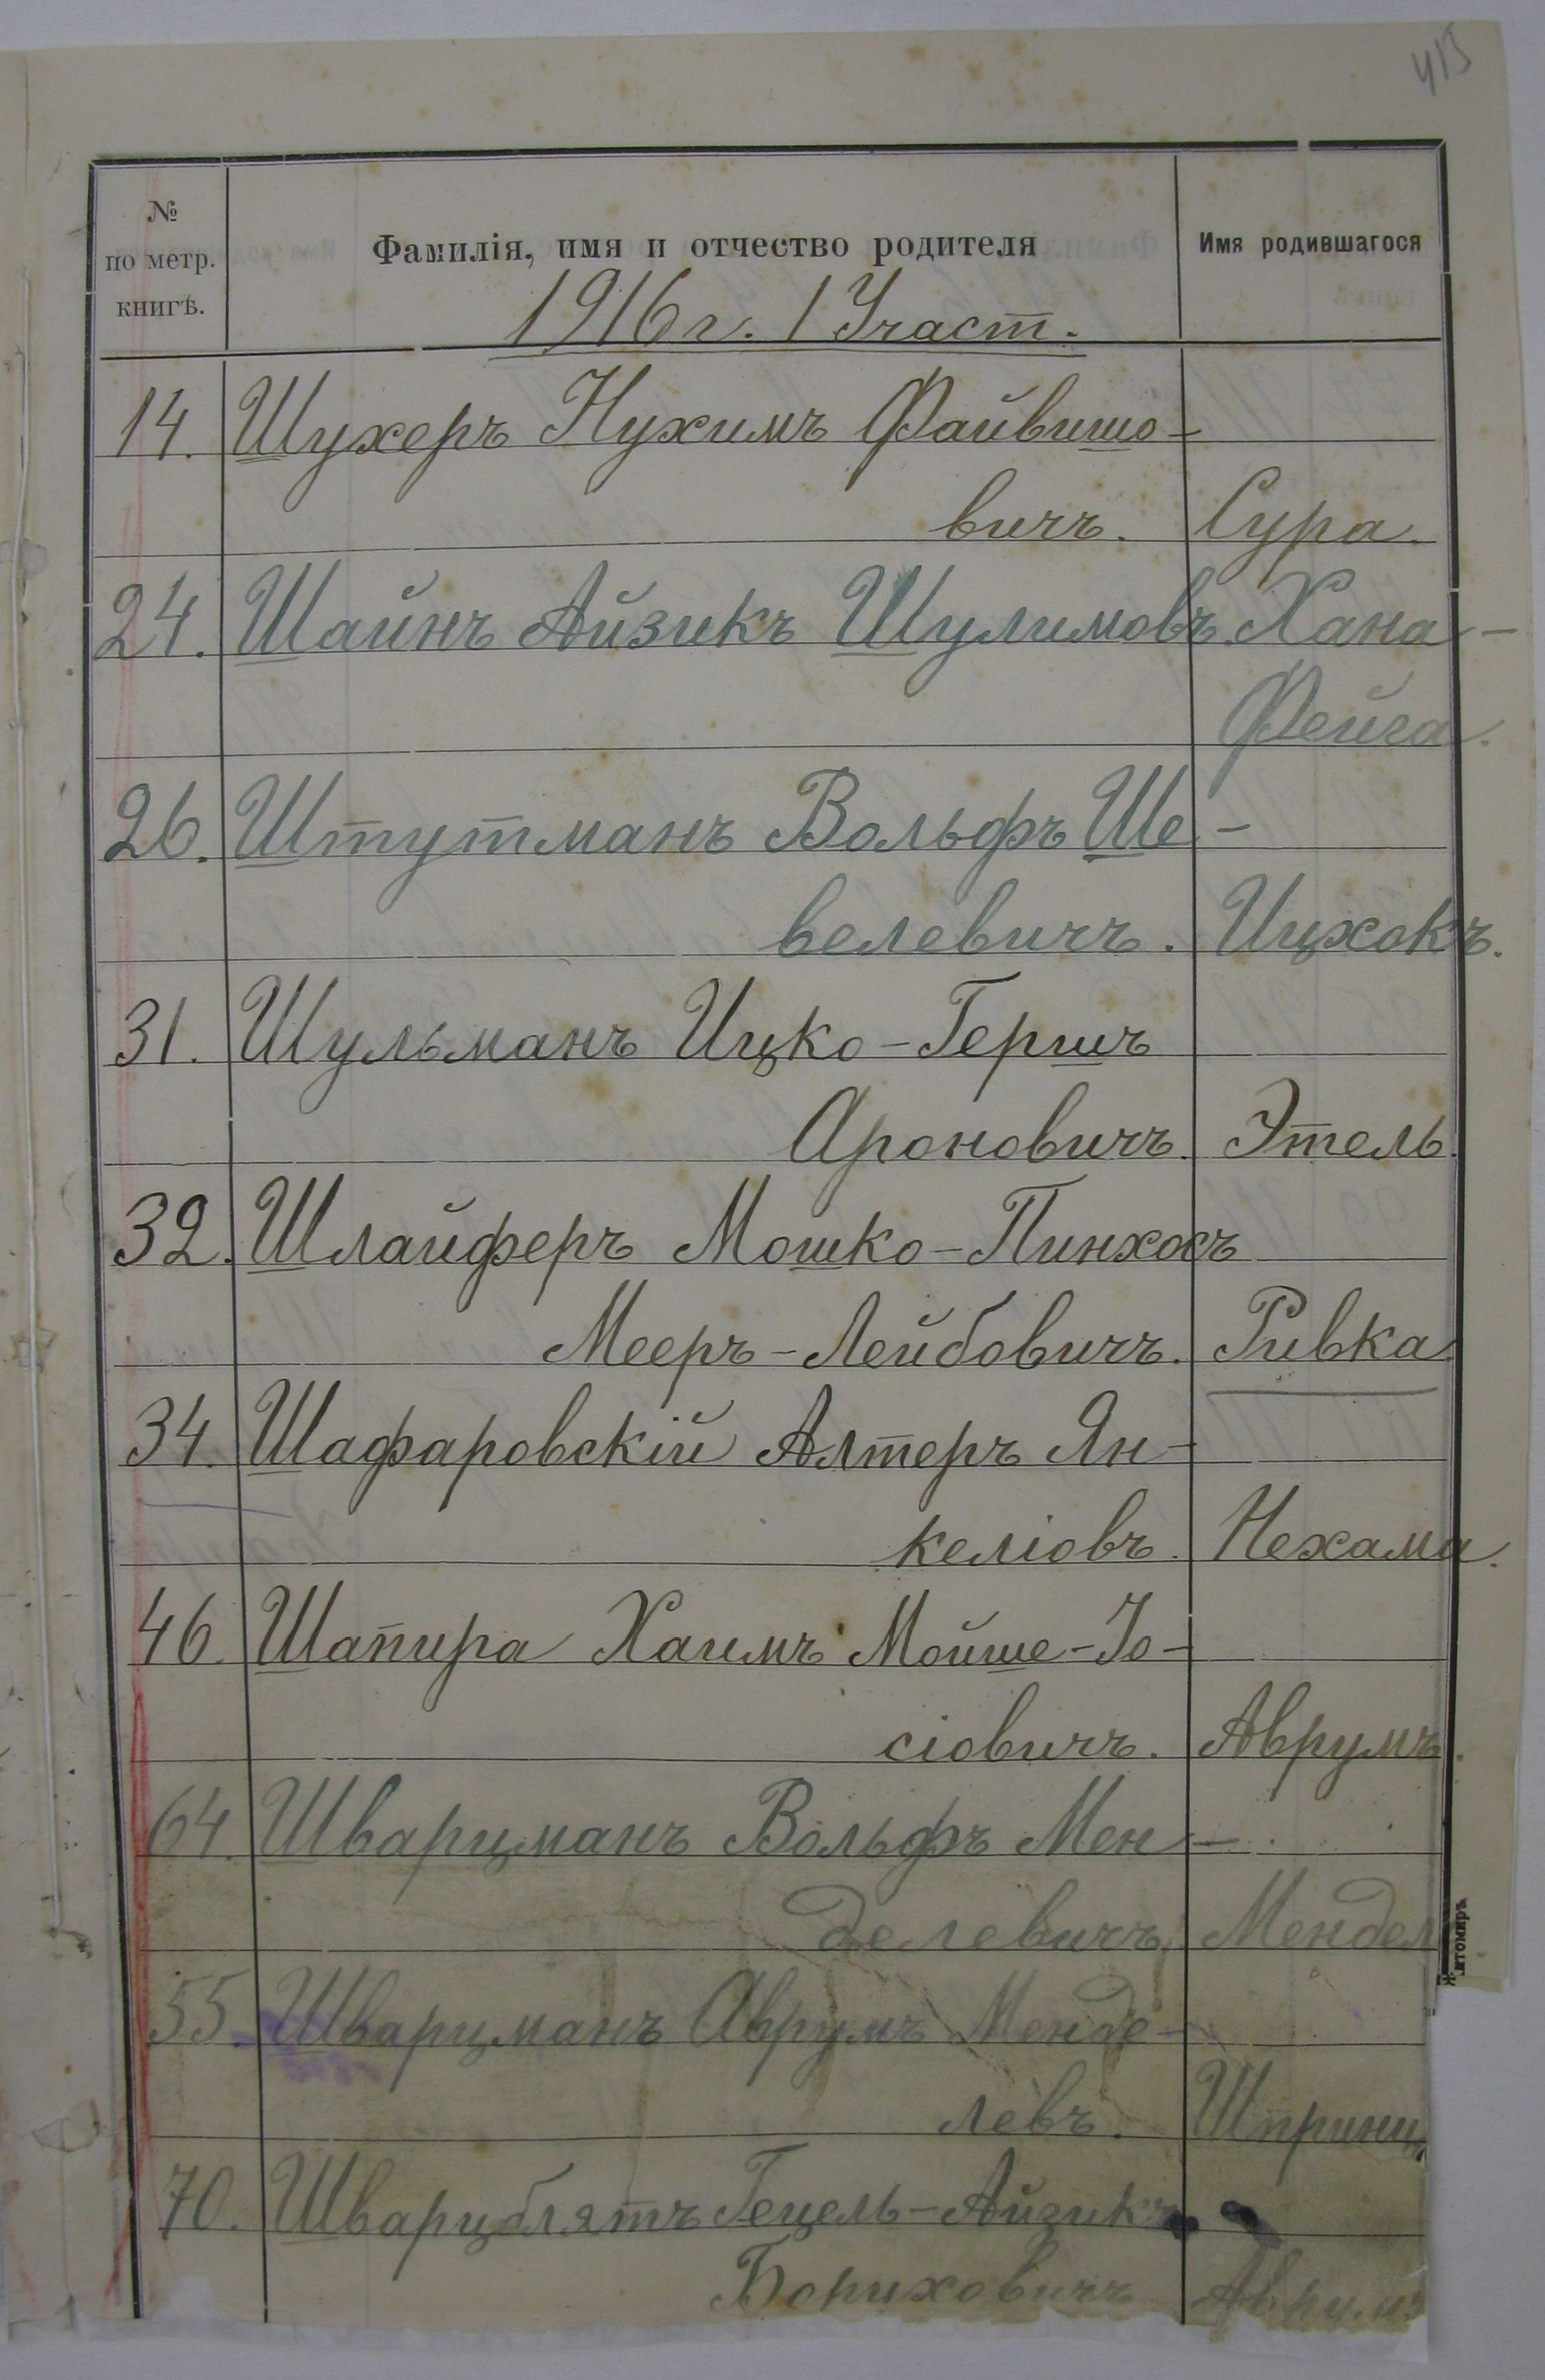 415
№
по метр.
книгѣ.
Фамилія, имя и отчество родителя
Имя родившагося
1916 г. 1 Участ.
14. Шухеръ Нухимъ Файвишо-
вичъ. Сура.
24. Шайнъ Айзикъ Шулимовъ. Хана-
Фейга.
26. Штутманъ Вольфъ Ше-
велевичъ. Ицхокъ.
31. Шульманъ Ицко-Гершъ
Ароновичъ. Этель.
32. Шлайферъ Мошко-Пинхосъ
Мееръ-Лейбовичъ. Ривка
34. Шафаровскій Алтеръ Ян-
келіовъ. Нехама.
46. Шапира Хаимъ Мойше-Іо-
сіовичъ. Аврумъ.
64. Шварцманъ Вольфъ Мен-
делевичъ. Мендел
55. Шварцманъ Аврумъ Менде-
левъ. Шпринц
70. Шварцблятъ Гецель-Айзикъ
Бориховичъ Аврумъ
Житомиръ